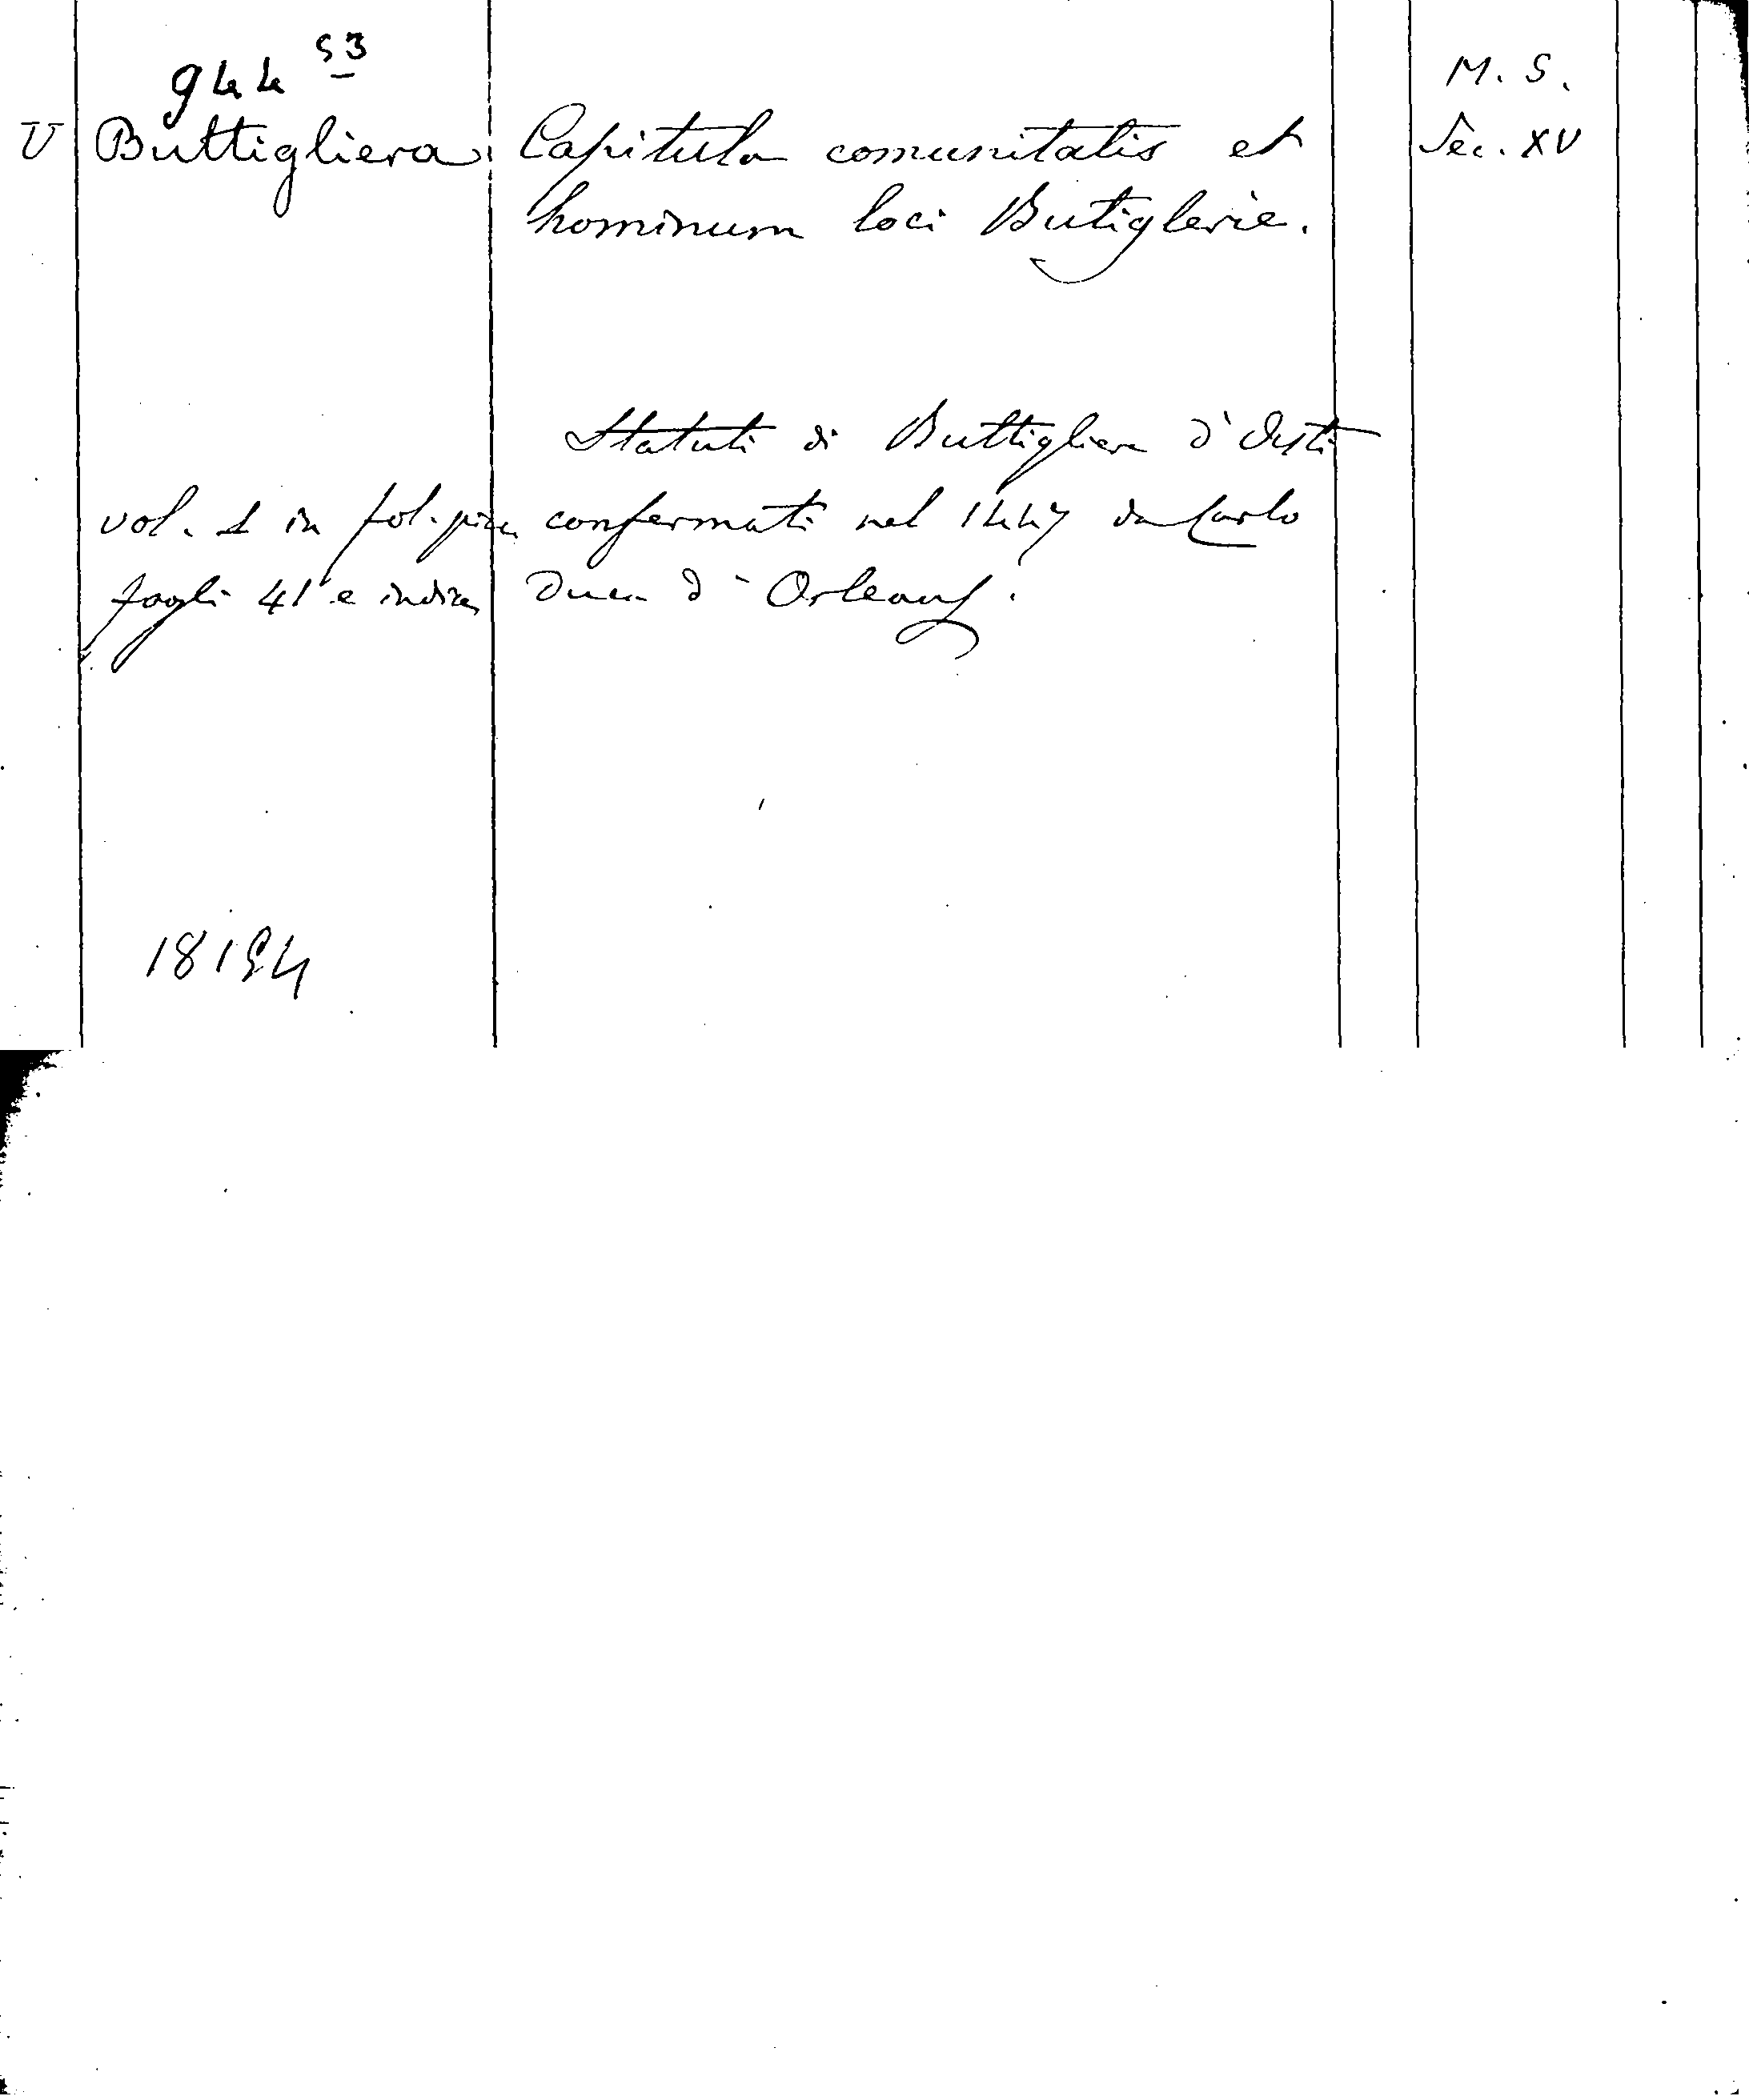 944 53
M. S.
V Buttigliera Capitula comunitatis et Sec. XV
hominum loci Butiglerie.
Statuti di Buttigliera d'Asti
vol. 1 in fol. picc. confermati nel 1447 da Carlo
fogli 41 e indice Duca d'Orleans.
18154